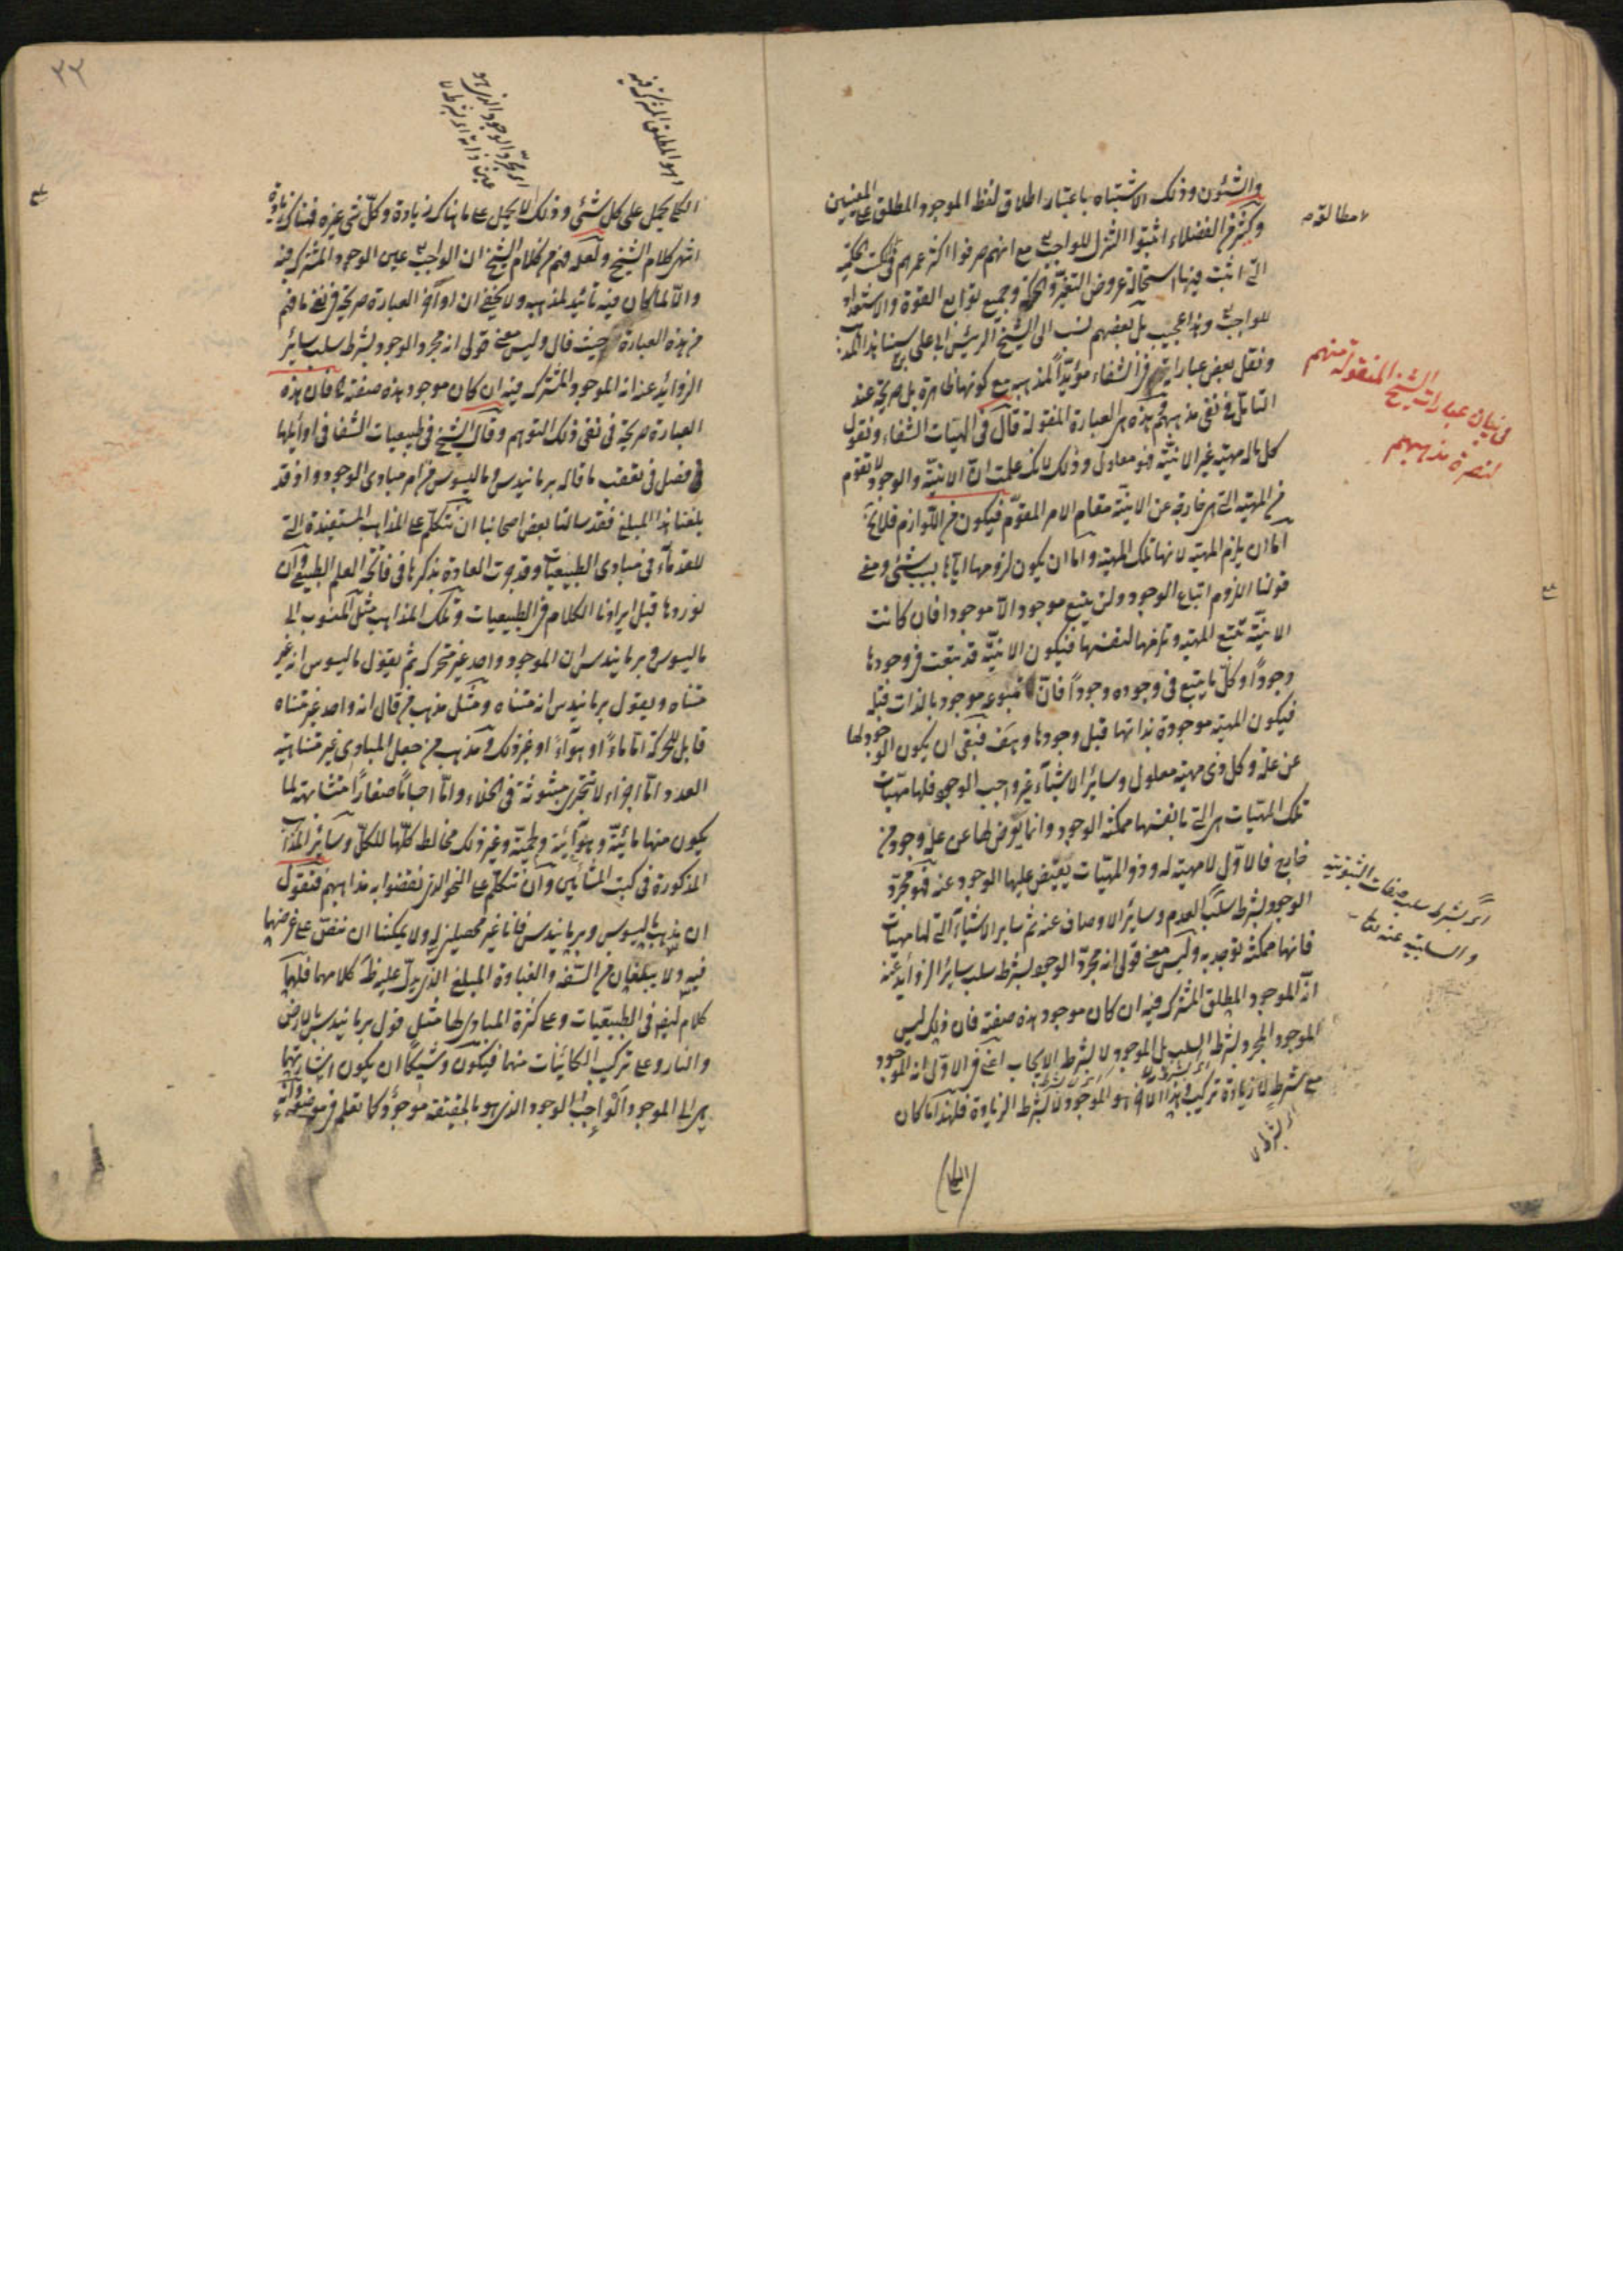 والشئون وذلك الاشتباه باعتبار اطلاق لفظ الموجود المطلق على المعنيين
وكثير من الفضلاء اثبتوا التنزل للواجب تع مع انهم صرفوا اكثر عمرهم فى كتب الحكمة
التى اثبت فيها استحالة عروض التغير والحركة وجميع توابع القوة والاستعداد
للواجب تع وهذا عجيب بل بعضهم نسب الى الشيخ الرئيس ابى على سينا هذا المذهب
ونقل بعض عباراته فى الشفاء مؤيدا لمذهبه مع كونها ظاهرة بل صريحة عند
التامل فى نفى مذهبهم هذه هى العبارة المنقولة قال فى الهيات الشفاء ونقول
كل ماله مهية غير الانية فهو معلول وذلك لانك علمت ان الانية والوجود لا تقوم
من المهية التى هى خارجة عن الانية مقام الامر المقوم فيكون من اللوازم فلا يخ
اما ان يلزم المهية لانها تلك المهية واما ان يكون لزومها اياها بسبب شئ ومعنى
قولنا اللزوم اتباع الوجود ولن يتبع موجود الا موجودا فان كانت
الانية تتبع المهية وتلزمها لنفسها فيكون الانية قد تبعت فى وجودها
وجودا وكل ما يتبع فى وجوده وجودا فان متبوعه موجود بالذات قبله
فيكون المهية موجودة بذاتها قبل وجودها وهف فبقى ان يكون الوجود لها
عن علة وكل ذى مهية معلول وسائر الاشياء غير واجب الوجود فلها مهيات
تلك المهيات هى التى بانفسها ممكنة الوجود وانما يعرض لها عن علل وجود من
خارج فالاول لا مهية له وذو المهيات يفيض عليها الوجود عنه فهو مجرد
الوجود بشرط سلب العدم وسائر الاوصاف عنه ثم سائر الاشياء التى لها مهيات
فانها ممكنة توجد به وليس معنى قولى انه مجرد الوجود بشرط سلب سائر الزوائد عنه
انه الموجود المطلق المشترك فيه ان كان موجود هذه صفته فان ذلك ليس
الموجود المجرد بشرط السلب بل الموجود لا بشرط الايجاب اعنى فى الاول انه الموجود
مع شرط لا زيادة تركيب وهذا الاخر هو الموجود لا بشرط الزيادة فلهذا ما كان
لا مطالقه
فى بيان عبارات الشيخ المنقولة منهم
لنصرة مذهبهم
اى بشرط سلب صفات الثبوتية
والسلبية عنه تعالى
٢٢
وهو المطلق المشترك فيه
الكلى يحمل على كل شئ وذلك لا يحمل على ما هناك زيادة وكل شئ غيره فهناك زيادة
انتهى كلام الشيخ ولعله فهم من كلام الشيخ ان الواجب تع عين الوجود المشترك فيه
والا لما كان فيه تائيد لمذهبه ولا يخفى ان اواخر العبارة صريحة فى نفى ما فهم
من هذه العبارة حيث قال وليس معنى قولى انه مجرد الوجود بشرط سلب سائر
الزوائد عنه انه الموجود المشترك فيه ان كان موجود هذه صفته فان هذه
العبارة صريحة فى نفى ذلك التوهم وقال الشيخ فى طبيعيات الشفا فى اوائلها
فى فصل فى تعقب ما قاله برمانيدس وماليسوس من امر مبادى الوجود واذ قد
بلغنا هذا المبلغ فقد سالنا بعض اصحابنا ان نتكلم على المذاهب المستفيدة التى
للقدماء فى مبادى الطبيعيات وقد جرت العادة بذكرها فى فاتحة العلم الطبيعى وان
نوردها قبل ايرادنا الكلام فى الطبيعيات وتلك المذاهب مثل المنسوب الى
ماليسوس وبرمانيدس ان الموجود واحد غير متحرك ثم يقول ماليسوس انه غير
متناه ويقول برمانيدس انه متناه ومثل مذهب من قال انه واحد غير متناه
قابل للحركة اما ماء او هواء او غير ذلك ومذهب من جعل المبادى غير متناهية
العدد اما اجزاء لا تتجزى مبثوثة فى الخلاء واما اجساما صغارا متشابهة لما
يكون منها مائية وهوائية ولحمية وغير ذلك مخالط كلها للكل وسائر المذاهب
المذكورة فى كتب المشائين وان نتكلم على النحو الذى نقضوا به مذاهبهم فنقول
ان مذهب ماليسوس وبرمانيدس فانا غير محصلين له ولا يمكننا ان ننص على غرضهما
فيه ولا يبلغان من السفه والغباوة المبلغ الذى يدل عليه ظ كلامهما فلهما
كلام ايضا فى الطبيعيات وعلى كثرة المبادى لها مثل قول برمانيدس بالارض
والنار وعلى تركيب الكائنات منهما فيكون وشيكا ان يكون اشارتهما
هى الى الموجود الواجب الوجود الذى هو بالحقيقة موجود كما تعلم فى موضعه وانه